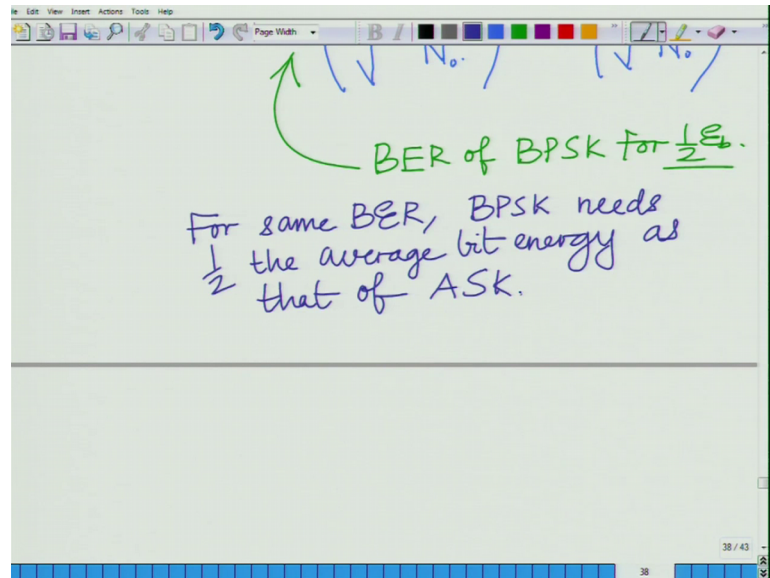 File Edit View Insert Actions Tools Help
Page Width
B I
(√ N₀ ) (√ N₀ )
BER of BPSK for ½ Ɛb.
For same BER, BPSK needs
½ the average bit energy as
that of ASK.
38 / 43
38